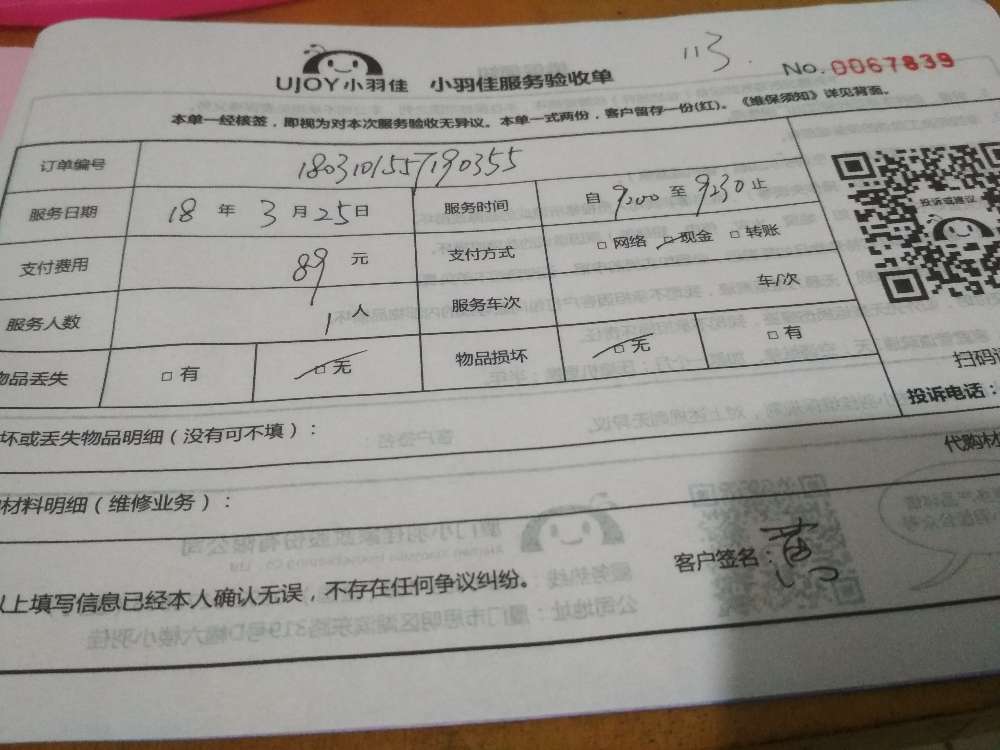 113
UJOY小羽佳 小羽佳服务验收单 No.0067839
本单一经核签，即视为对本次服务验收无异议。本单一式两份，客户留存一份(红)。《维保须知》详见背面。
订单编号 180310155719035​5
服务日期 18 年 3 月 25 日 服务时间 自 9:00 至 9:30 止
投诉或建议
支付费用 89 元 支付方式 □ 网络 □ 现金 □ 转账
服务人数 1 人 服务车次 车/次
物品丢失 □ 有 □ 无 物品损坏 □ 无 □ 有
扫码
投诉电话：
坏或丢失物品明细（没有可不填）：
代购材
材料明细（维修业务）：
以上填写信息已经本人确认无误，不存在任何争议纠纷。 客户签名：